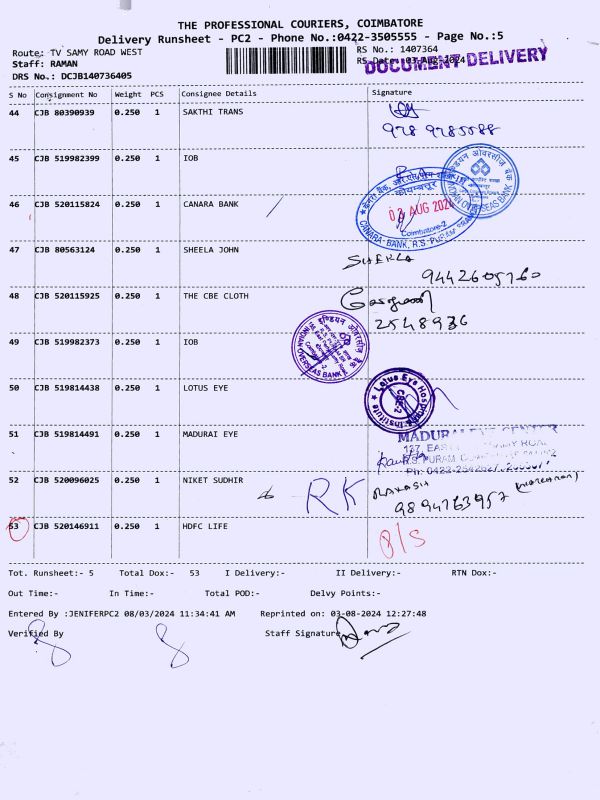 THE PROFESSIONAL COURIERS, COIMBATORE
Delivery Runsheet - PC2 - Phone No.:0422-3505555 - Page No.:5
Route: TV SAMY ROAD WEST
RS No.: 1407364
Staff: RAMAN
RS Date: 03-Aug-2024
DOCUMENT DELIVERY
DRS No.: DCJB140736405
S No Consignment No Weight PCS Consignee Details Signature
44 CJB 80390939 0.250 1 SAKTHI TRANS
45 CJB 519982399 0.250 1 IOB
INDIAN OVERSEAS BANK
46 CJB 520115824 0.250 1 CANARA BANK
AUG 2024
Coimbatore-2
CANARA BANK, R.S. PURAM
47 CJB 80563124 0.250 1 SHEELA JOHN
SHEELA
9442605760
48 CJB 520115925 0.250 1 THE CBE CLOTH
2548936
49 CJB 519982373 0.250 1 IOB
INDIAN OVERSEAS BANK
50 CJB 519814438 0.250 1 LOTUS EYE
Lotus Eye Hospital
Institute
CBE-2
51 CJB 519814491 0.250 1 MADURAI EYE
MADURAI EYE CENTER
R.S. PURAM
52 CJB 520096025 0.250 1 NIKET SUDHIR
RK
9894763957
53 CJB 520146911 0.250 1 HDFC LIFE
Tot. Runsheet:- 5 Total Dox:- 53 I Delivery:- II Delivery:- RTN Dox:-
Out Time:- In Time:- Total POD:- Delvy Points:-
Entered By :JENIFERPC2 08/03/2024 11:34:41 AM Reprinted on: 03-08-2024 12:27:48
Verified By Staff Signature